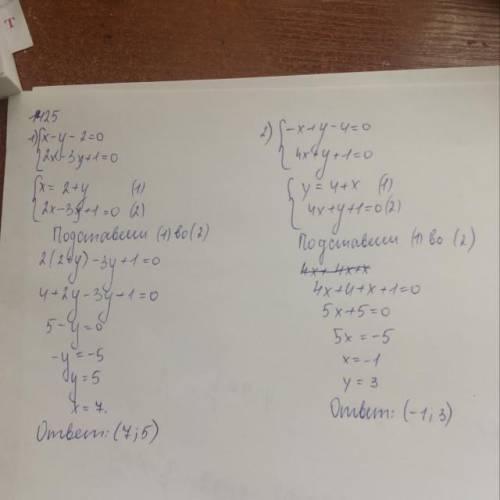 1125
1) { x-y-2=0
2x-3y+1=0
{ x=2+y (1)
2x-3y+1=0 (2)
Подставим (1) во (2)
2(2+y)-3y+1=0
4+2y-3y+1=0
5-y=0
-y=-5
y=5
x=7.
Ответ: (7;5)
2) { -x+y-4=0
4x+y+1=0
{ y=4+x (1)
4x+y+1=0 (2)
Подставим (1) во (2)
4x+4x+x
4x+4+x+1=0
5x+5=0
5x=-5
x=-1
y=3
Ответ: (-1;3)
т